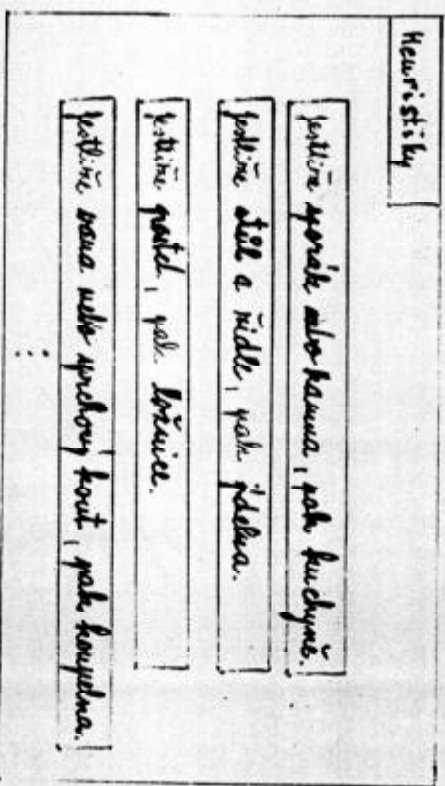 Heuristiky
Jestliže sporák nebo kamna, pak kuchyně.
Jestliže stůl a židle, pak jídelna.
Jestliže postel, pak ložnice.
Jestliže vana nebo sprchový kout, pak koupelna.
⋮